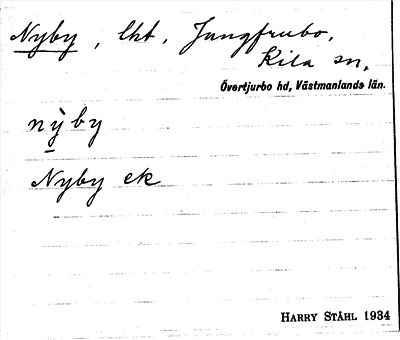 Nyby, lht, Jungfrubo,
Kila sn,
Övertjurbo hd, Västmanlands län.
nỳby
Nyby ek
HARRY STÅHL 1934